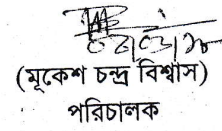 (মূকেশ চন্দ্র বিশ্বাস)
পরিচালক